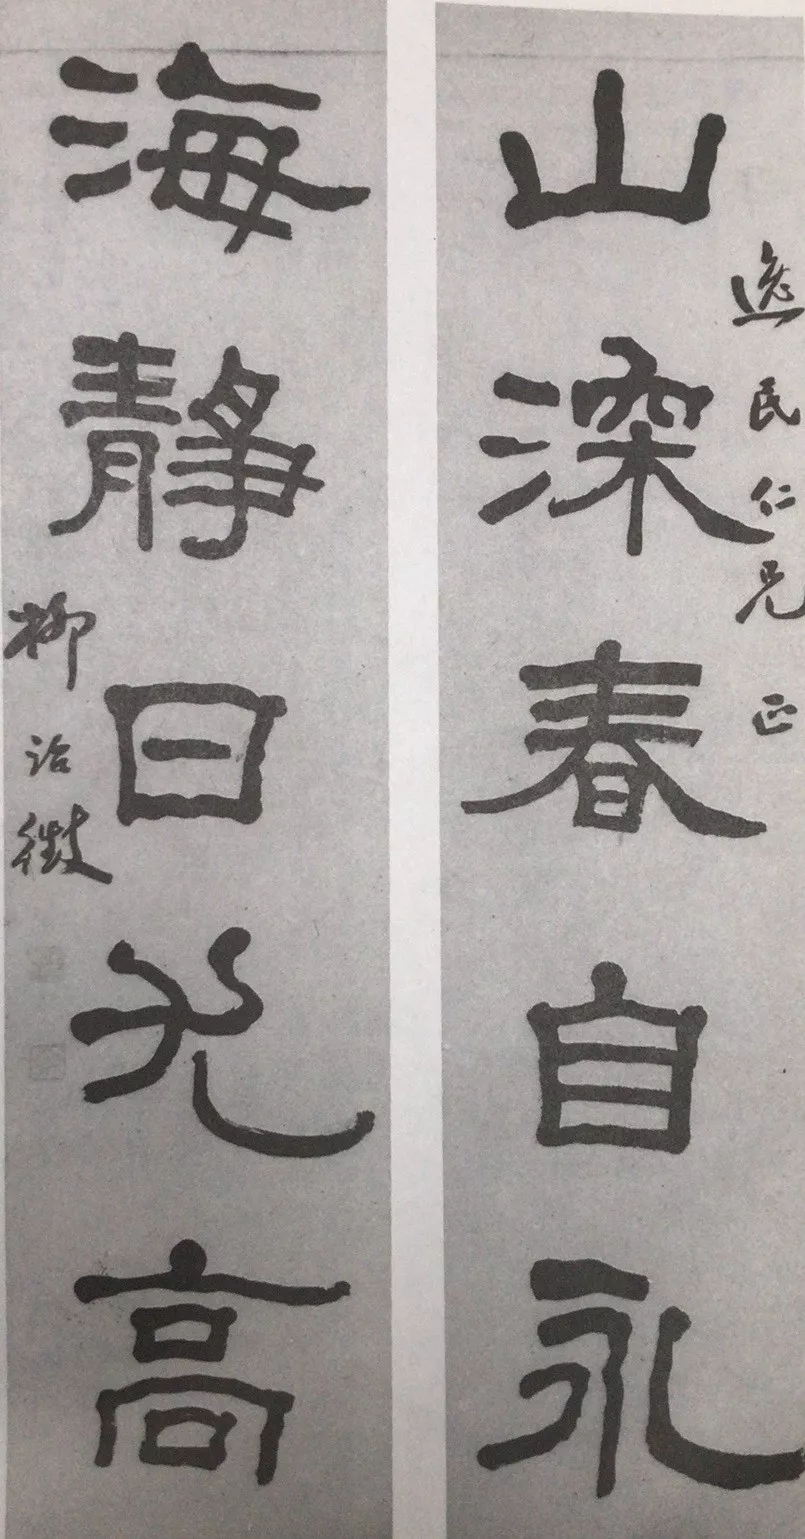 逸民仁兄正
山深春自永
海靜日光高
柳詒徵